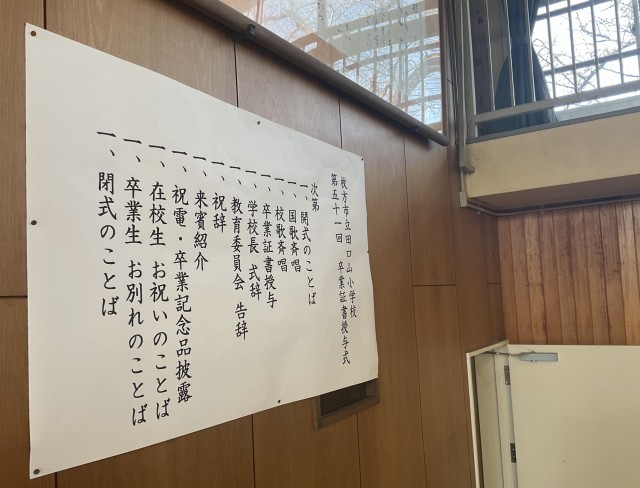 枚方市立田口山小学校
第五十一回 卒業証書授与式
次第
一、開式のことば
一、国歌斉唱
一、校歌斉唱
一、卒業証書授与
一、学校長 式辞
一、教育委員会 告辞
一、祝辞
一、来賓紹介
一、祝電・卒業記念品披露
一、在校生 お祝いのことば
一、卒業生 お別れのことば
一、閉式のことば